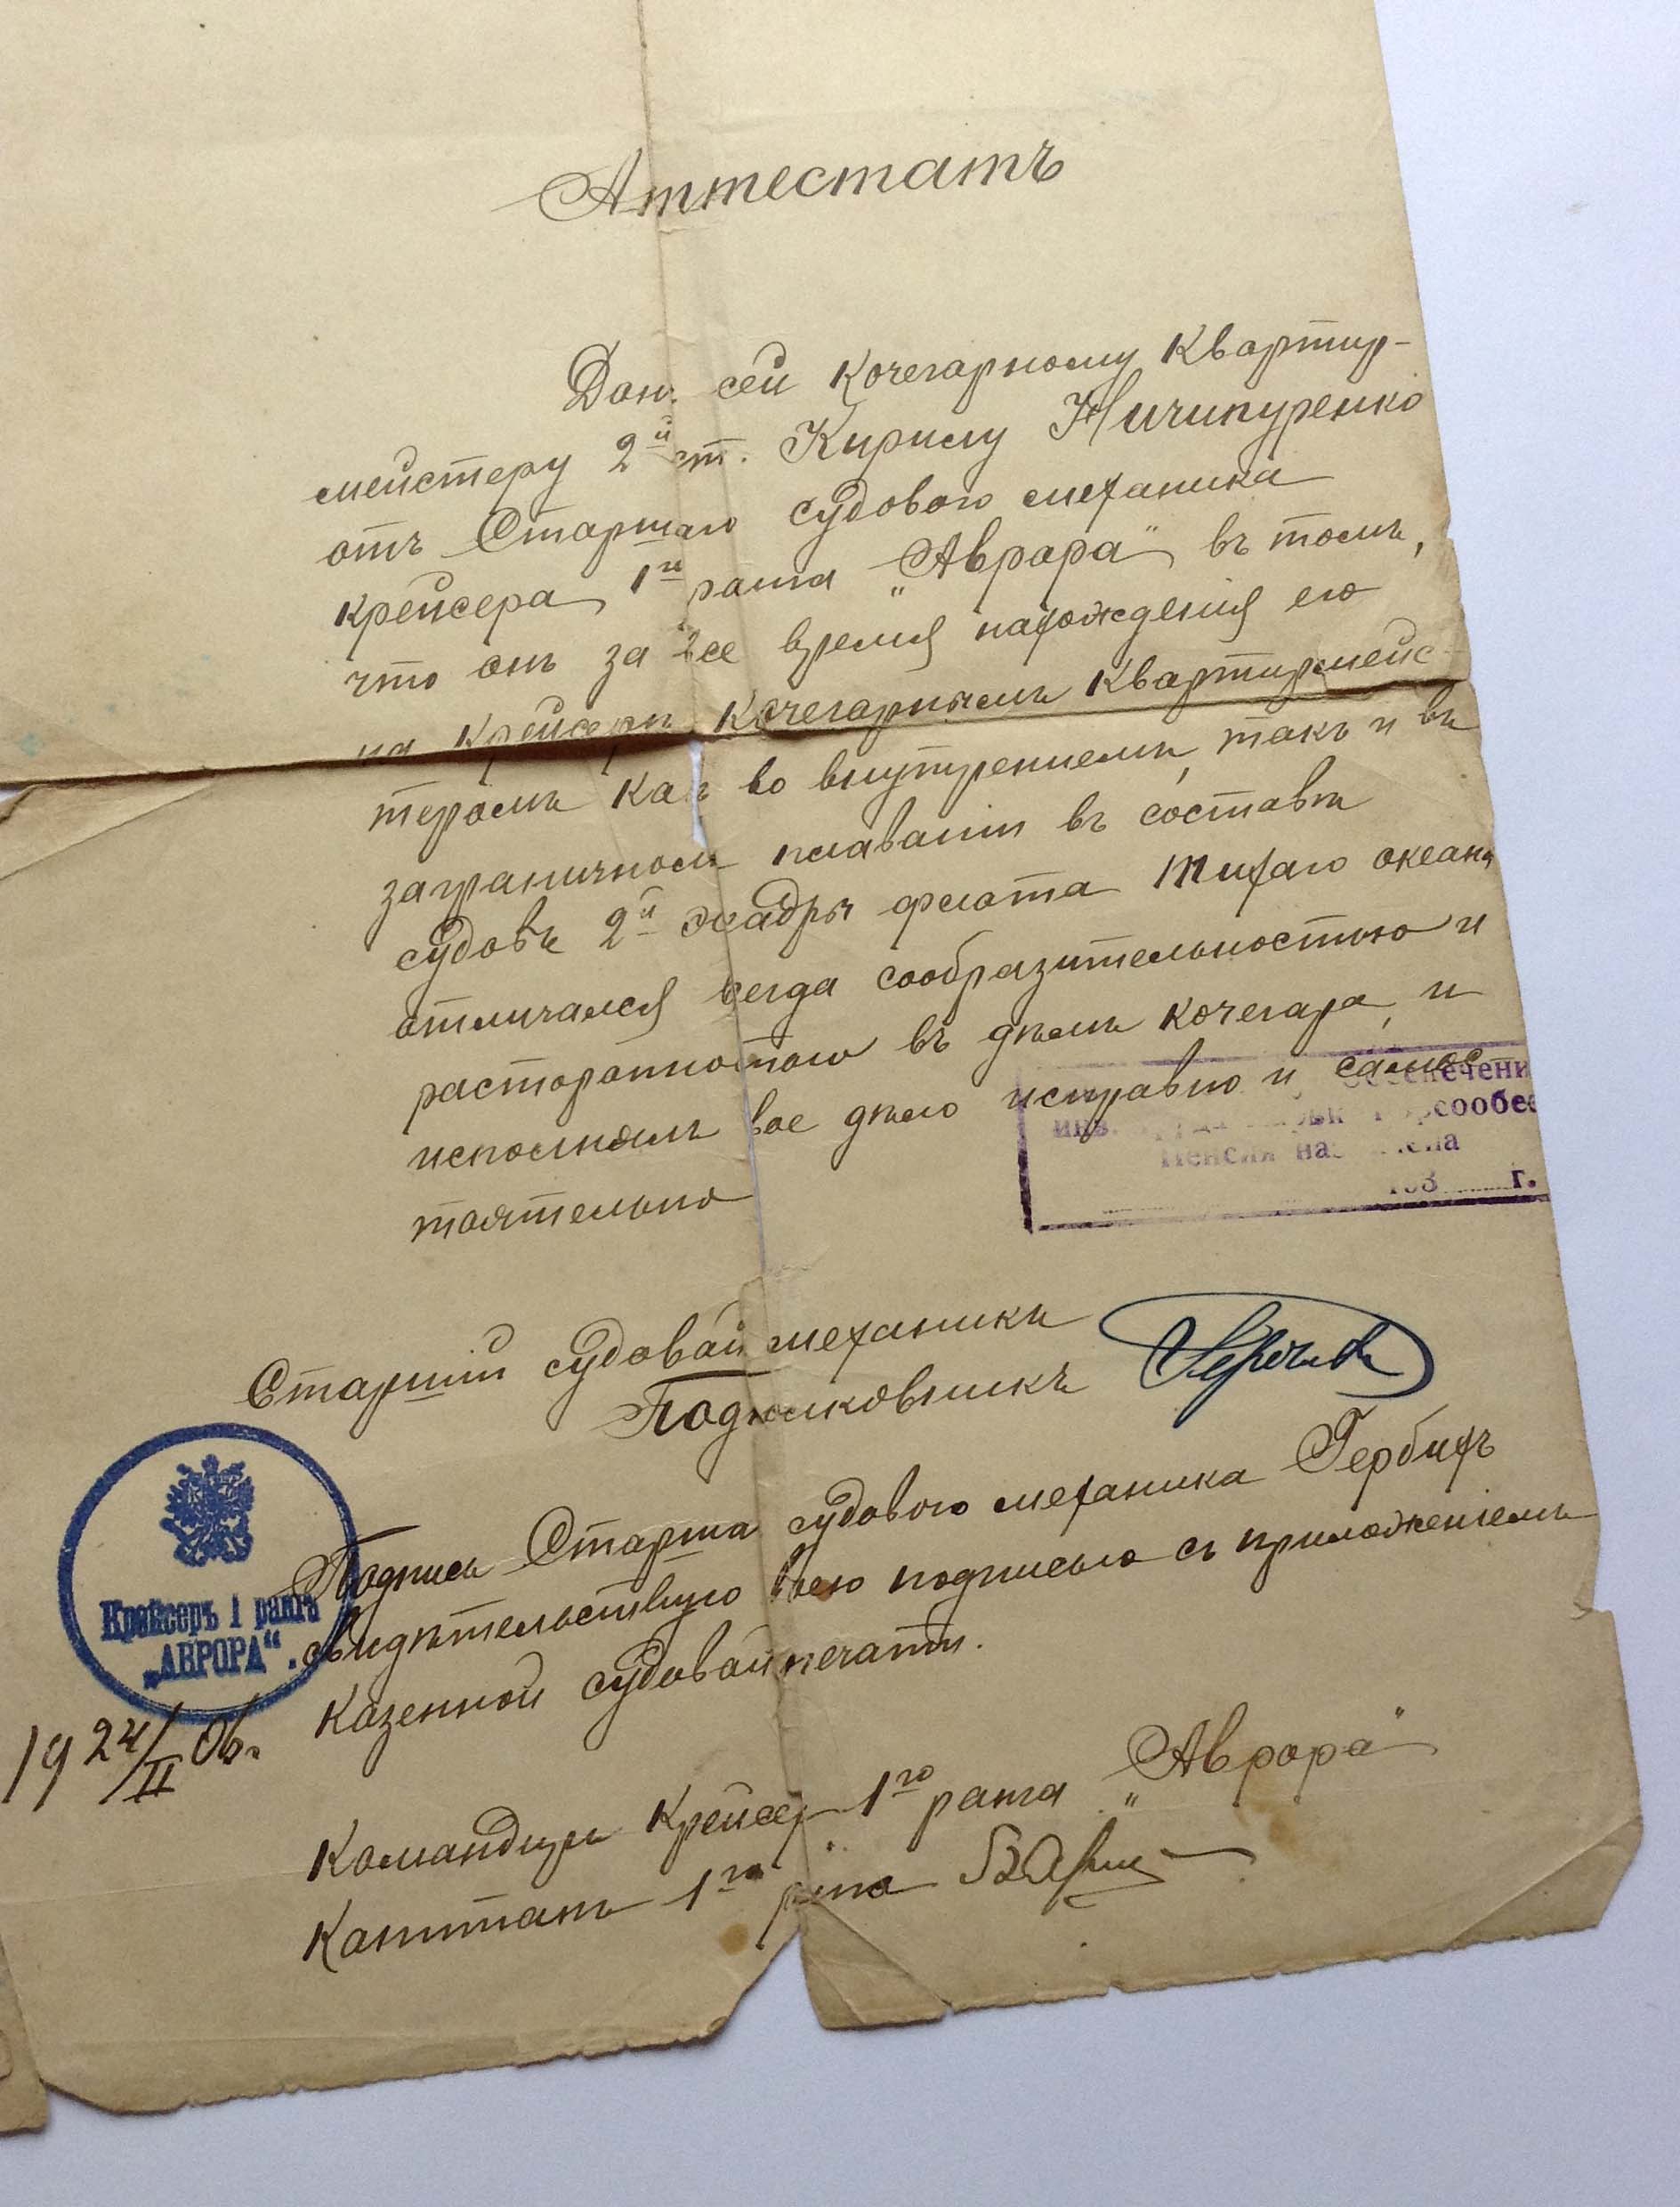 Аттестатъ
Дан. сей Кочегарному Квартир-
мейстеру 2й ст. Кирилу Ничипуренко
отъ Старшаго судового механика
крейсера 1го ранга „Аврора" въ томъ,
что онъ за все время нахожденія его
на Крейсерѣ Кочегарнымъ Квартирмейс-
теромъ какъ во внутреннемъ, такъ и въ
заграничномъ плаваніи въ составѣ
судовъ 2й эскадры флота Тихаго океана
отличался всегда сообразительностью и
расторопностью въ дѣлѣ кочегара, и
исполнялъ свое дѣло исправно и самос-
тоятельно
обеспечени
Горсообес
Пенсия назначена
193 г.
Старшій судовой механикъ
Подполковникъ
Подпись Старша судового механика Гербихъ
свидѣтельствую своею подписью съ приложеніемъ
Казенной судовой печати.
Крейсеръ 1 ранга
„АВРОРА“.
19 24/II 06 г.
Командиръ Крейсер 1го ранга „Аврора"
Капитанъ 1го ранга